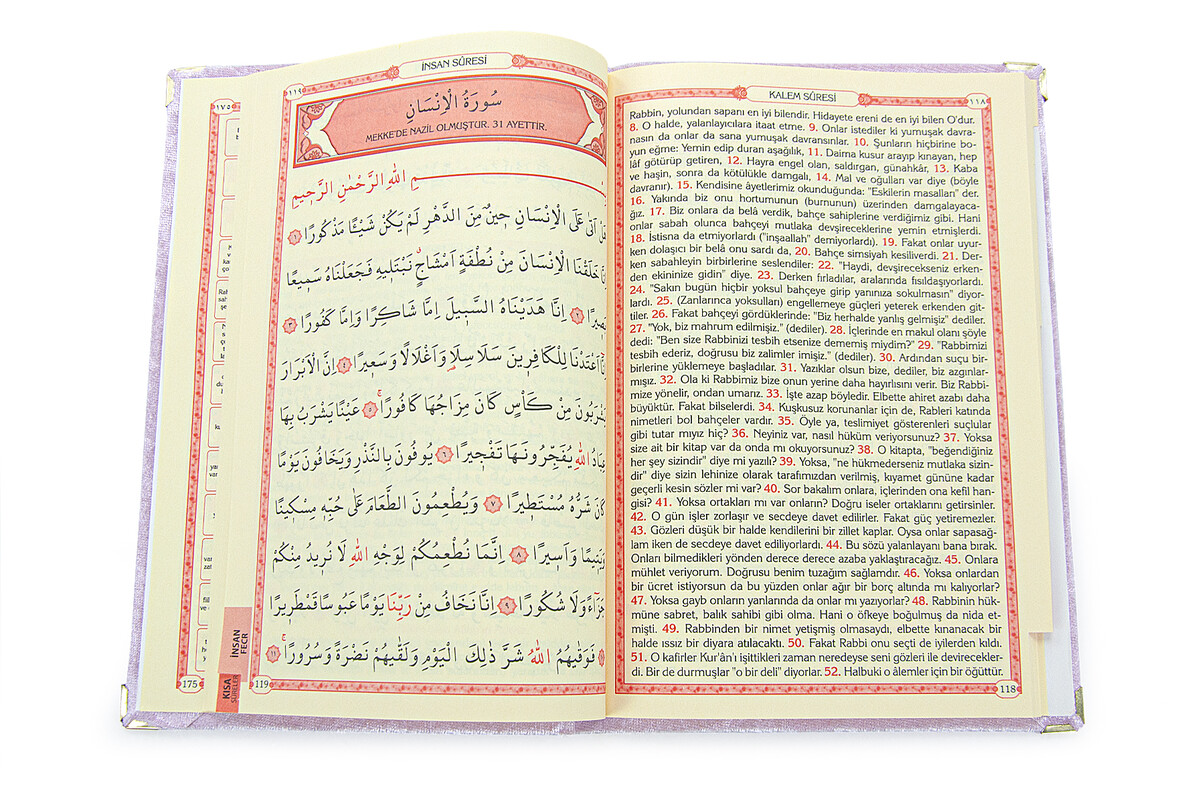 İNSAN SÛRESİ
١١٩
سُورَةُ الْاِنْسَانِ
MEKKE'DE NAZİL OLMUŞTUR. 31 AYETTİR.
بِسْمِ اللّٰهِ الرَّحْمٰنِ الرَّحٖيمِ
هَلْ اَتٰى عَلَى الْاِنْسَانِ حٖينٌ مِنَ الدَّهْرِ لَمْ يَكُنْ شَيْئًا مَذْكُورًا ١
اِنَّا خَلَقْنَا الْاِنْسَانَ مِنْ نُطْفَةٍ اَمْشَاجٍ نَبْتَلٖيهِ فَجَعَلْنَاهُ سَمٖيعًا
بَصٖيرًا ٢ اِنَّا هَدَيْنَاهُ السَّبٖيلَ اِمَّا شَاكِرًا وَاِمَّا كَفُورًا ٣
اِنَّا اَعْتَدْنَا لِلْكَافِرٖينَ سَلَاسِلَا۬ وَاَغْلَالًا وَسَعٖيرًا ٤ اِنَّ الْاَبْرَارَ
يَشْرَبُونَ مِنْ كَاْسٍ كَانَ مِزَاجُهَا كَافُورًا ٥ عَيْنًا يَشْرَبُ بِهَا
عِبَادُ اللّٰهِ يُفَجِّرُونَهَا تَفْجٖيرًا ٦ يُوفُونَ بِالنَّذْرِ وَيَخَافُونَ يَوْمًا
كَانَ شَرُّهُ مُسْتَطٖيرًا ٧ وَيُطْعِمُونَ الطَّعَامَ عَلٰى حُبِّهٖ مِسْكٖينًا
وَيَتٖيمًا وَاَسٖيرًا ٨ اِنَّمَا نُطْعِمُكُمْ لِوَجْهِ اللّٰهِ لَا نُرٖيدُ مِنْكُمْ
جَزَٓاءً وَلَا شُكُورًا ٩ اِنَّا نَخَافُ مِنْ رَبِّنَا يَوْمًا عَبُوسًا قَمْطَرٖيرًا
فَوَقٰيهُمُ اللّٰهُ شَرَّ ذٰلِكَ الْيَوْمِ وَلَقّٰيهُمْ نَضْرَةً وَسُرُورًا ١١
119
İNSAN
FECR
KISA
SÛRELER
١٧٥
175
KALEM SÛRESİ
١١٨
Rabbin, yolundan sapanı en iyi bilendir. Hidayete ereni de en iyi bilen O'dur.
8. O halde, yalanlayıcılara itaat etme. 9. Onlar istediler ki yumuşak davra-
nasın da onlar da sana yumuşak davransınlar. 10. Şunların hiçbirine bo-
yun eğme: Yemin edip duran aşağılık, 11. Daima kusur arayıp kınayan, hep
lâf götürüp getiren, 12. Hayra engel olan, saldırgan, günahkâr, 13. Kaba
ve haşin, sonra da kötülükle damgalı, 14. Mal ve oğulları var diye (böyle
davranır). 15. Kendisine âyetlerimiz okunduğunda: "Eskilerin masalları" der.
16. Yakında biz onu hortumunun (burnunun) üzerinden damgalayaca-
ğız. 17. Biz onlara da belâ verdik, bahçe sahiplerine verdiğimiz gibi. Hani
onlar sabah olunca bahçeyi mutlaka devşireceklerine yemin etmişlerdi.
18. İstisna da etmiyorlardı ("inşaallah" demiyorlardı). 19. Fakat onlar uyur-
ken dolaşıcı bir belâ onu sardı da, 20. Bahçe simsiyah kesiliverdi. 21. Der-
ken sabahleyin birbirlerine seslendiler: 22. "Haydi, devşirecekseniz erken-
den ekininize gidin" diye. 23. Derken fırladılar, aralarında fısıldaşıyorlardı.
24. "Sakın bugün hiçbir yoksul bahçeye girip yanınıza sokulmasın" diyor-
lardı. 25. (Zanlarınca yoksulları) engellemeye güçleri yeterek erkenden git-
tiler. 26. Fakat bahçeyi gördüklerinde: "Biz herhalde yanlış gelmişiz" dediler.
27. "Yok, biz mahrum edilmişiz." (dediler). 28. İçlerinde en makul olanı şöyle
dedi: "Ben size Rabbinizi tesbih etsenize dememiş miydim?" 29. "Rabbimizi
tesbih ederiz, doğrusu biz zalimler imişiz." (dediler). 30. Ardından suçu bir-
birlerine yüklemeye başladılar. 31. Yazıklar olsun bize, dediler, biz azgınlar-
mışız. 32. Ola ki Rabbimiz bize onun yerine daha hayırlısını verir. Biz Rabbi-
mize yönelir, ondan umarız. 33. İşte azap böyledir. Elbette ahiret azabı daha
büyüktür. Fakat bilselerdi. 34. Kuşkusuz korunanlar için de, Rableri katında
nimetleri bol bahçeler vardır. 35. Öyle ya, teslimiyet gösterenleri suçlular
gibi tutar mıyız hiç? 36. Neyiniz var, nasıl hüküm veriyorsunuz? 37. Yoksa
size ait bir kitap var da onda mı okuyorsunuz? 38. O kitapta, "beğendiğiniz
her şey sizindir" diye mi yazılı? 39. Yoksa, "ne hükmederseniz mutlaka sizin-
dir" diye sizin lehinize olarak tarafımızdan verilmiş, kıyamet gününe kadar
geçerli kesin sözler mi var? 40. Sor bakalım onlara, içlerinden ona kefil han-
gisi? 41. Yoksa ortakları mı var onların? Doğru iseler ortaklarını getirsinler.
42. O gün işler zorlaşır ve secdeye davet edilirler. Fakat güç yetiremezler.
43. Gözleri düşük bir halde kendilerini bir zillet kaplar. Oysa onlar sapasağ-
lam iken de secdeye davet ediliyorlardı. 44. Bu sözü yalanlayanı bana bırak.
Onları bilmedikleri yönden derece derece azaba yaklaştıracağız. 45. Onlara
mühlet veriyorum. Doğrusu benim tuzağım sağlamdır. 46. Yoksa onlardan
bir ücret istiyorsun da bu yüzden onlar ağır bir borç altında mı kalıyorlar?
47. Yoksa gayb onların yanlarında da onlar mı yazıyorlar? 48. Rabbinin hük-
müne sabret, balık sahibi gibi olma. Hani o öfkeye boğulmuş da nida et-
mişti. 49. Rabbinden bir nimet yetişmiş olmasaydı, elbette kınanacak bir
halde ıssız bir diyara atılacaktı. 50. Fakat Rabbi onu seçti de iyilerden kıldı.
51. O kafirler Kur'ân'ı işittikleri zaman neredeyse seni gözleri ile devirecekler-
di. Bir de durmuşlar "o bir deli" diyorlar. 52. Halbuki o âlemler için bir öğüttür.
118